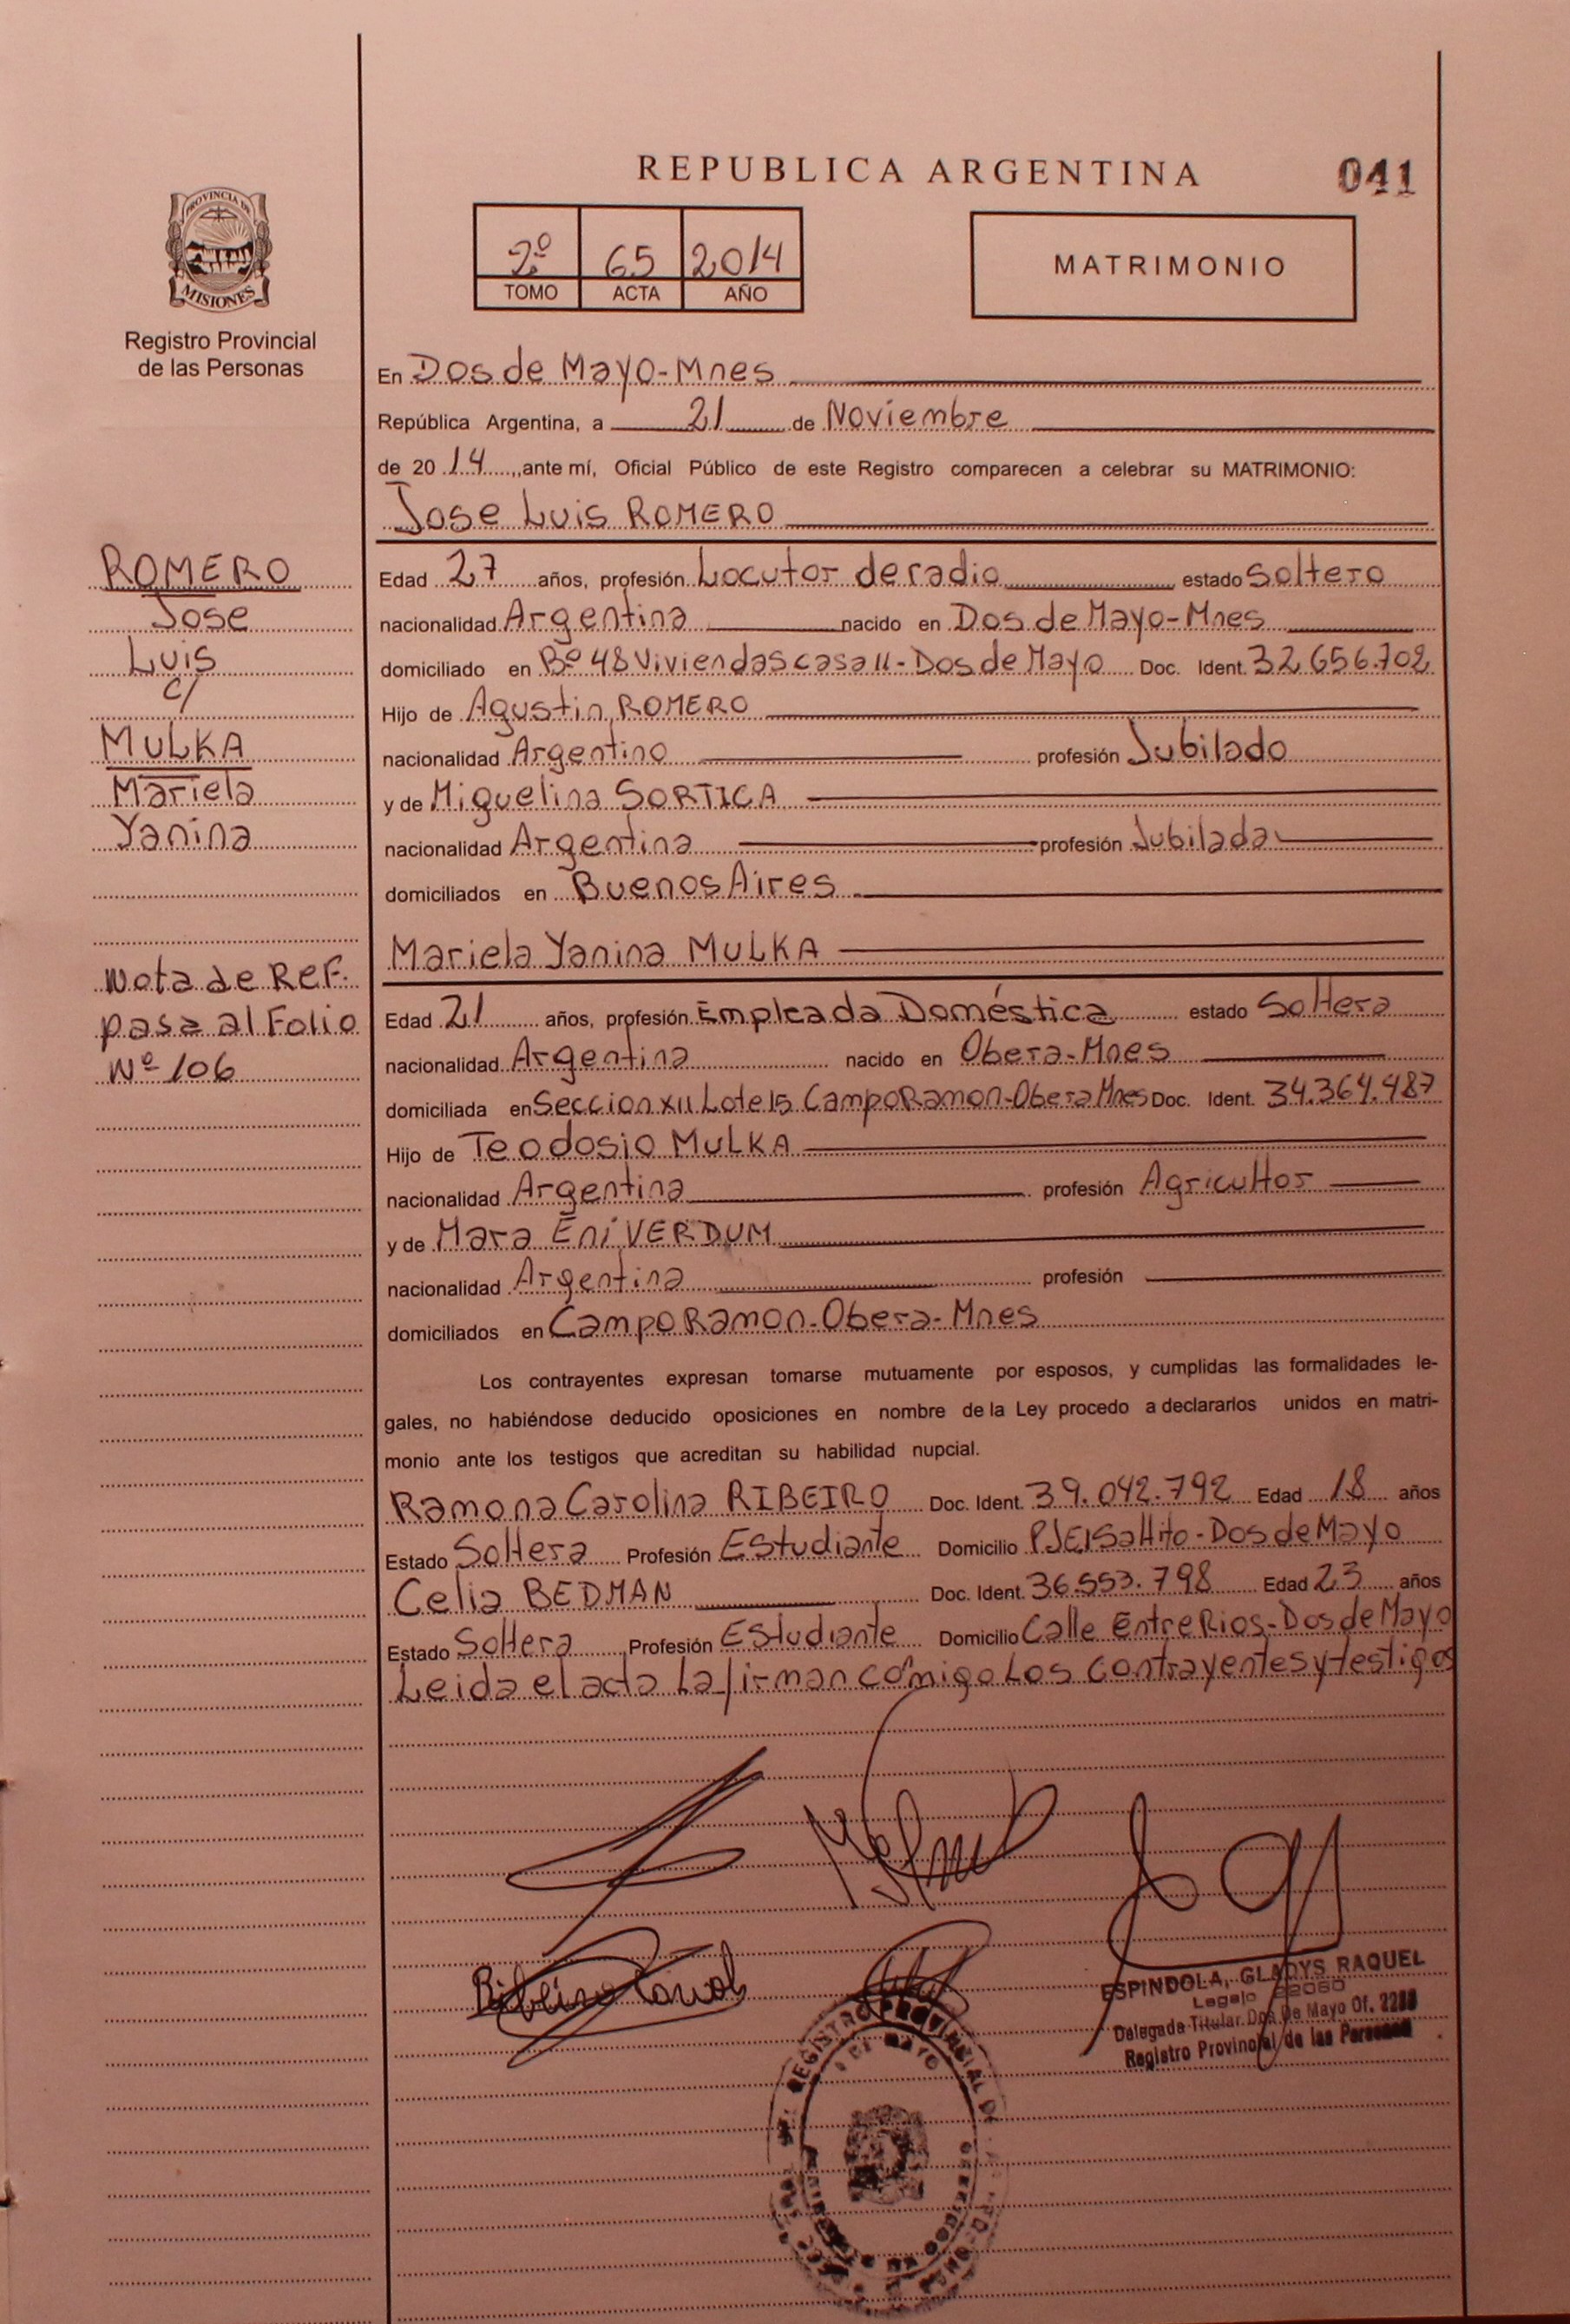 REPUBLICA ARGENTINA
041
PROVINCIA DE
MISIONES
Registro Provincial
de las Personas
2º 65 2014
TOMO ACTA AÑO
MATRIMONIO
En Dos de Mayo-Mnes
República Argentina, a 21 de Noviembre
de 20 14 , ante mí, Oficial Público de este Registro comparecen a celebrar su MATRIMONIO:
Jose Luis ROMERO
ROMERO
Jose
Luis
c/
MULKA
Mariela
Yanina
Edad 27 años, profesión Locutor de radio estado soltero
nacionalidad Argentina nacido en Dos de Mayo-Mnes
domiciliado en Bº 48 Viviendas casa 11-Dos de Mayo Doc. Ident. 32.656.702
Hijo de Agustin ROMERO
nacionalidad Argentino profesión Jubilado
y de Miguelina SORTICA
nacionalidad Argentina profesión Jubilada
domiciliados en Buenos Aires
Mariela Yanina MULKA
Nota de Ref.
pasa al Folio
Nº 106
Edad 21 años, profesión Empleada Doméstica estado Soltera
nacionalidad Argentina nacido en Obera-Mnes
domiciliada en Seccion XII Lote 15 Campo Ramon-Obera Mnes Doc. Ident. 34.364.487
Hijo de Teodosio MULKA
nacionalidad Argentina profesión Agricultor
y de Mara Eni VERDUM
nacionalidad Argentina profesión
domiciliados en Campo Ramon-Obera-Mnes
Los contrayentes expresan tomarse mutuamente por esposos, y cumplidas las formalidades le-
gales, no habiéndose deducido oposiciones en nombre de la Ley procedo a declararlos unidos en matri-
monio ante los testigos que acreditan su habilidad nupcial.
Ramona Carolina RIBEIRO Doc. Ident. 39.042.792 Edad 18 años
Estado Soltera Profesión Estudiante Domicilio PJE El Saltito-Dos de Mayo
Celia BEDMAN Doc. Ident. 36.553.798 Edad 23 años
Estado Soltera Profesión Estudiante Domicilio Calle Entre Rios-Dos de Mayo
Leida el acta La firman comigo Los contrayentes y testigos
Ribeiro Carol
ESPINDOLA, GLADYS RAQUEL
Legajo 22060
Delegada Titular Dos De Mayo Of. 2288
Registro Provincial de las Personas
REGISTRO PROVINCIAL DE
MAYO